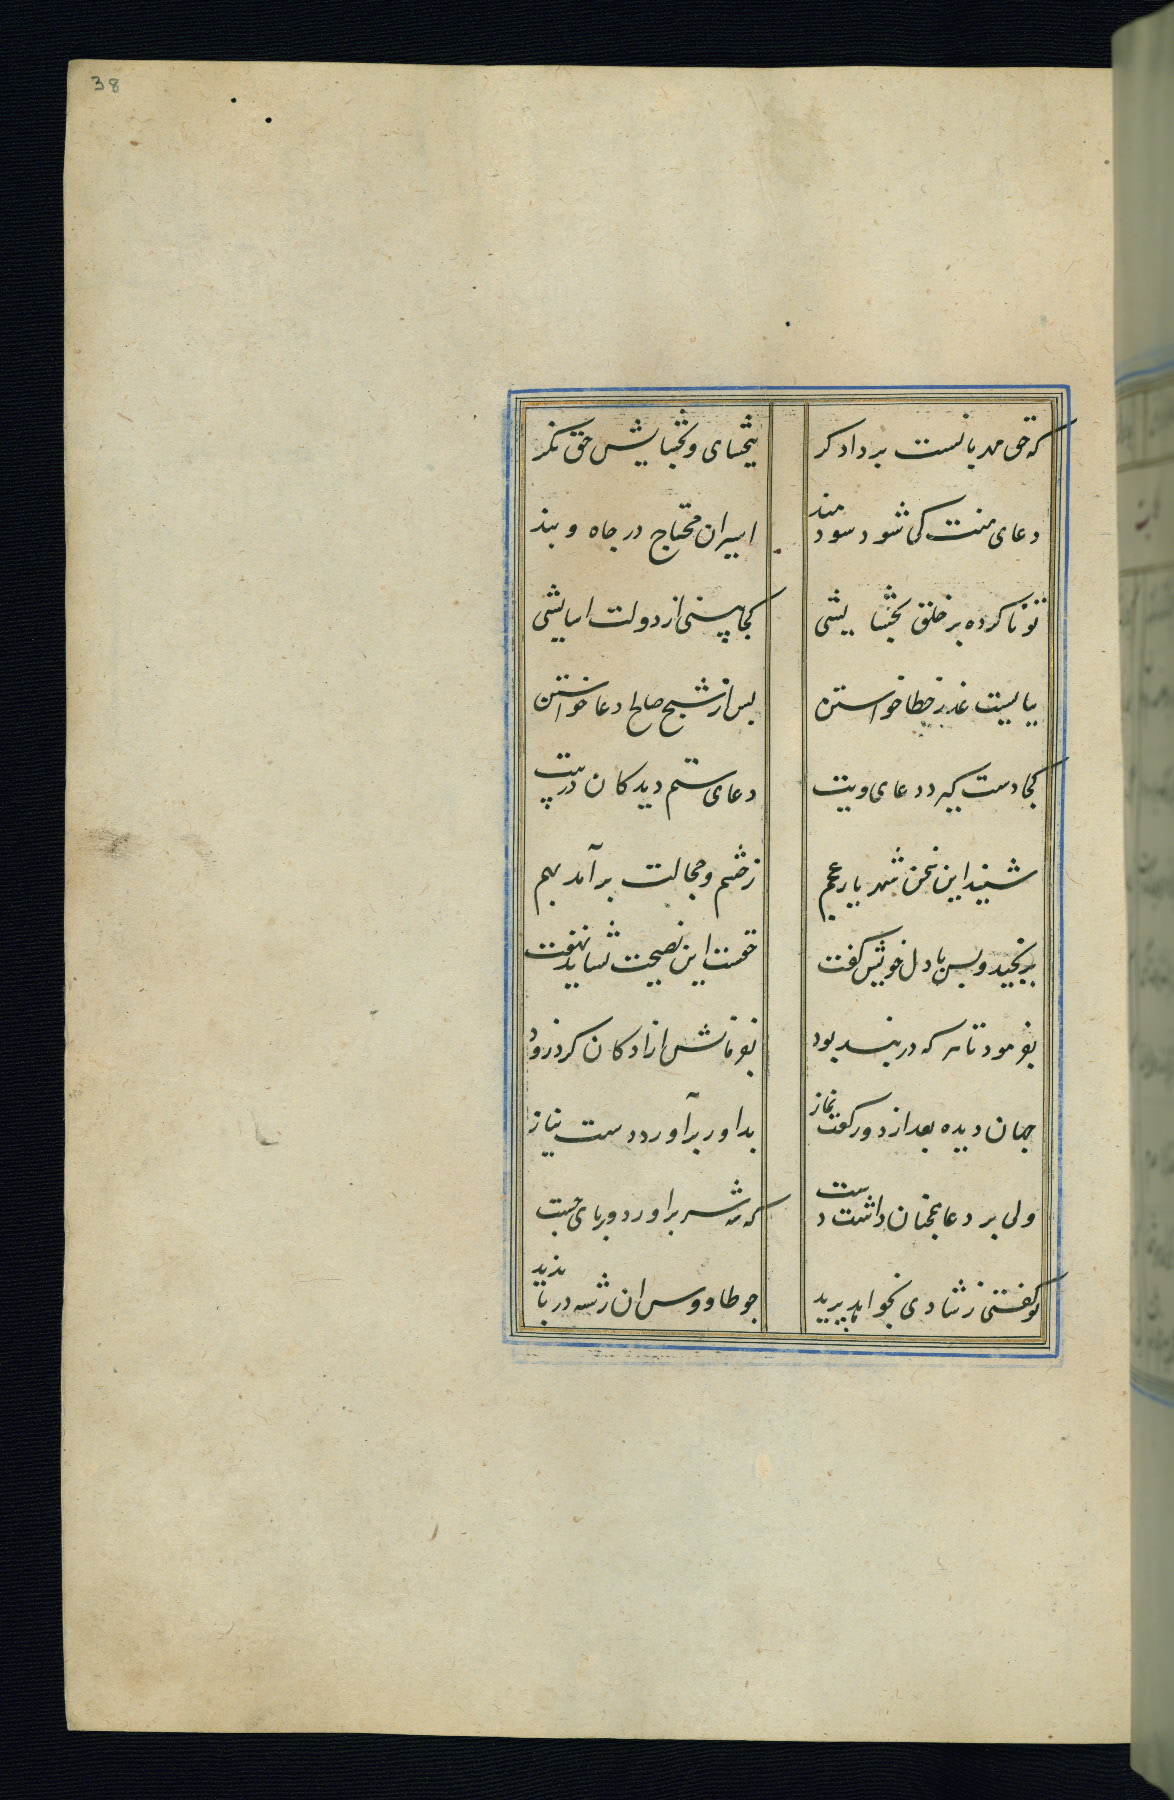 38
که حق مهربانست بر دادکر ببخشای و بخشایش حق نکر
دعای منت کی شود سودمند اسیران محتاج در چاه و بند
تو ناکرده بر خلق بخشایشی کجا بینی از دولت اسایشی
ببایست عذر خطا خواستن پس از شیخ صالح دعا خواستن
کجا دست کیرد دعای ویت دعای ستم دیدکان در پیت
شنید این سخن شهریار عجم ز خشم و خجالت برآمد بهم
برنجید و پس با دل خویش کفت حقست این نصیحت نشاید نهفت
بفرمود تا هر که در بند بود بفرمانش ازادکان کرد زود
جهان دیده بعد از دو رکعت نماز بداور برآورد دست نیاز
ولی بر دعا همچنان داشت دست که شه سر براورد و بر پای جست
تو کفتی ز شادی بخواهد پرید چو طاووس ان رشته در پا ندید